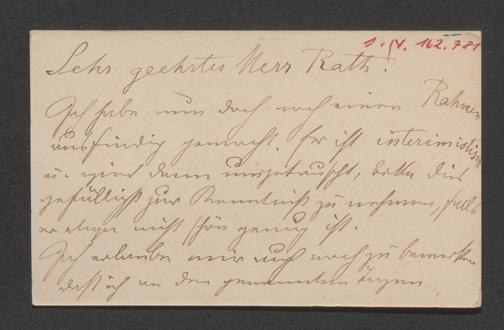 I. N. 162.781
Sehr geehrter Herr Rath!
Ich habe nun doch noch einen Rahmen
ausfindig gemacht. Er ist interimistisch
u. wird dann umgetauscht, bitte dies
gefälligst zur Kenntniß zu nehmen, falls
er etwa nicht schön genug ist.
Ich erlaube mir auch noch zu bemerken
daß ich an den genannten Tagen